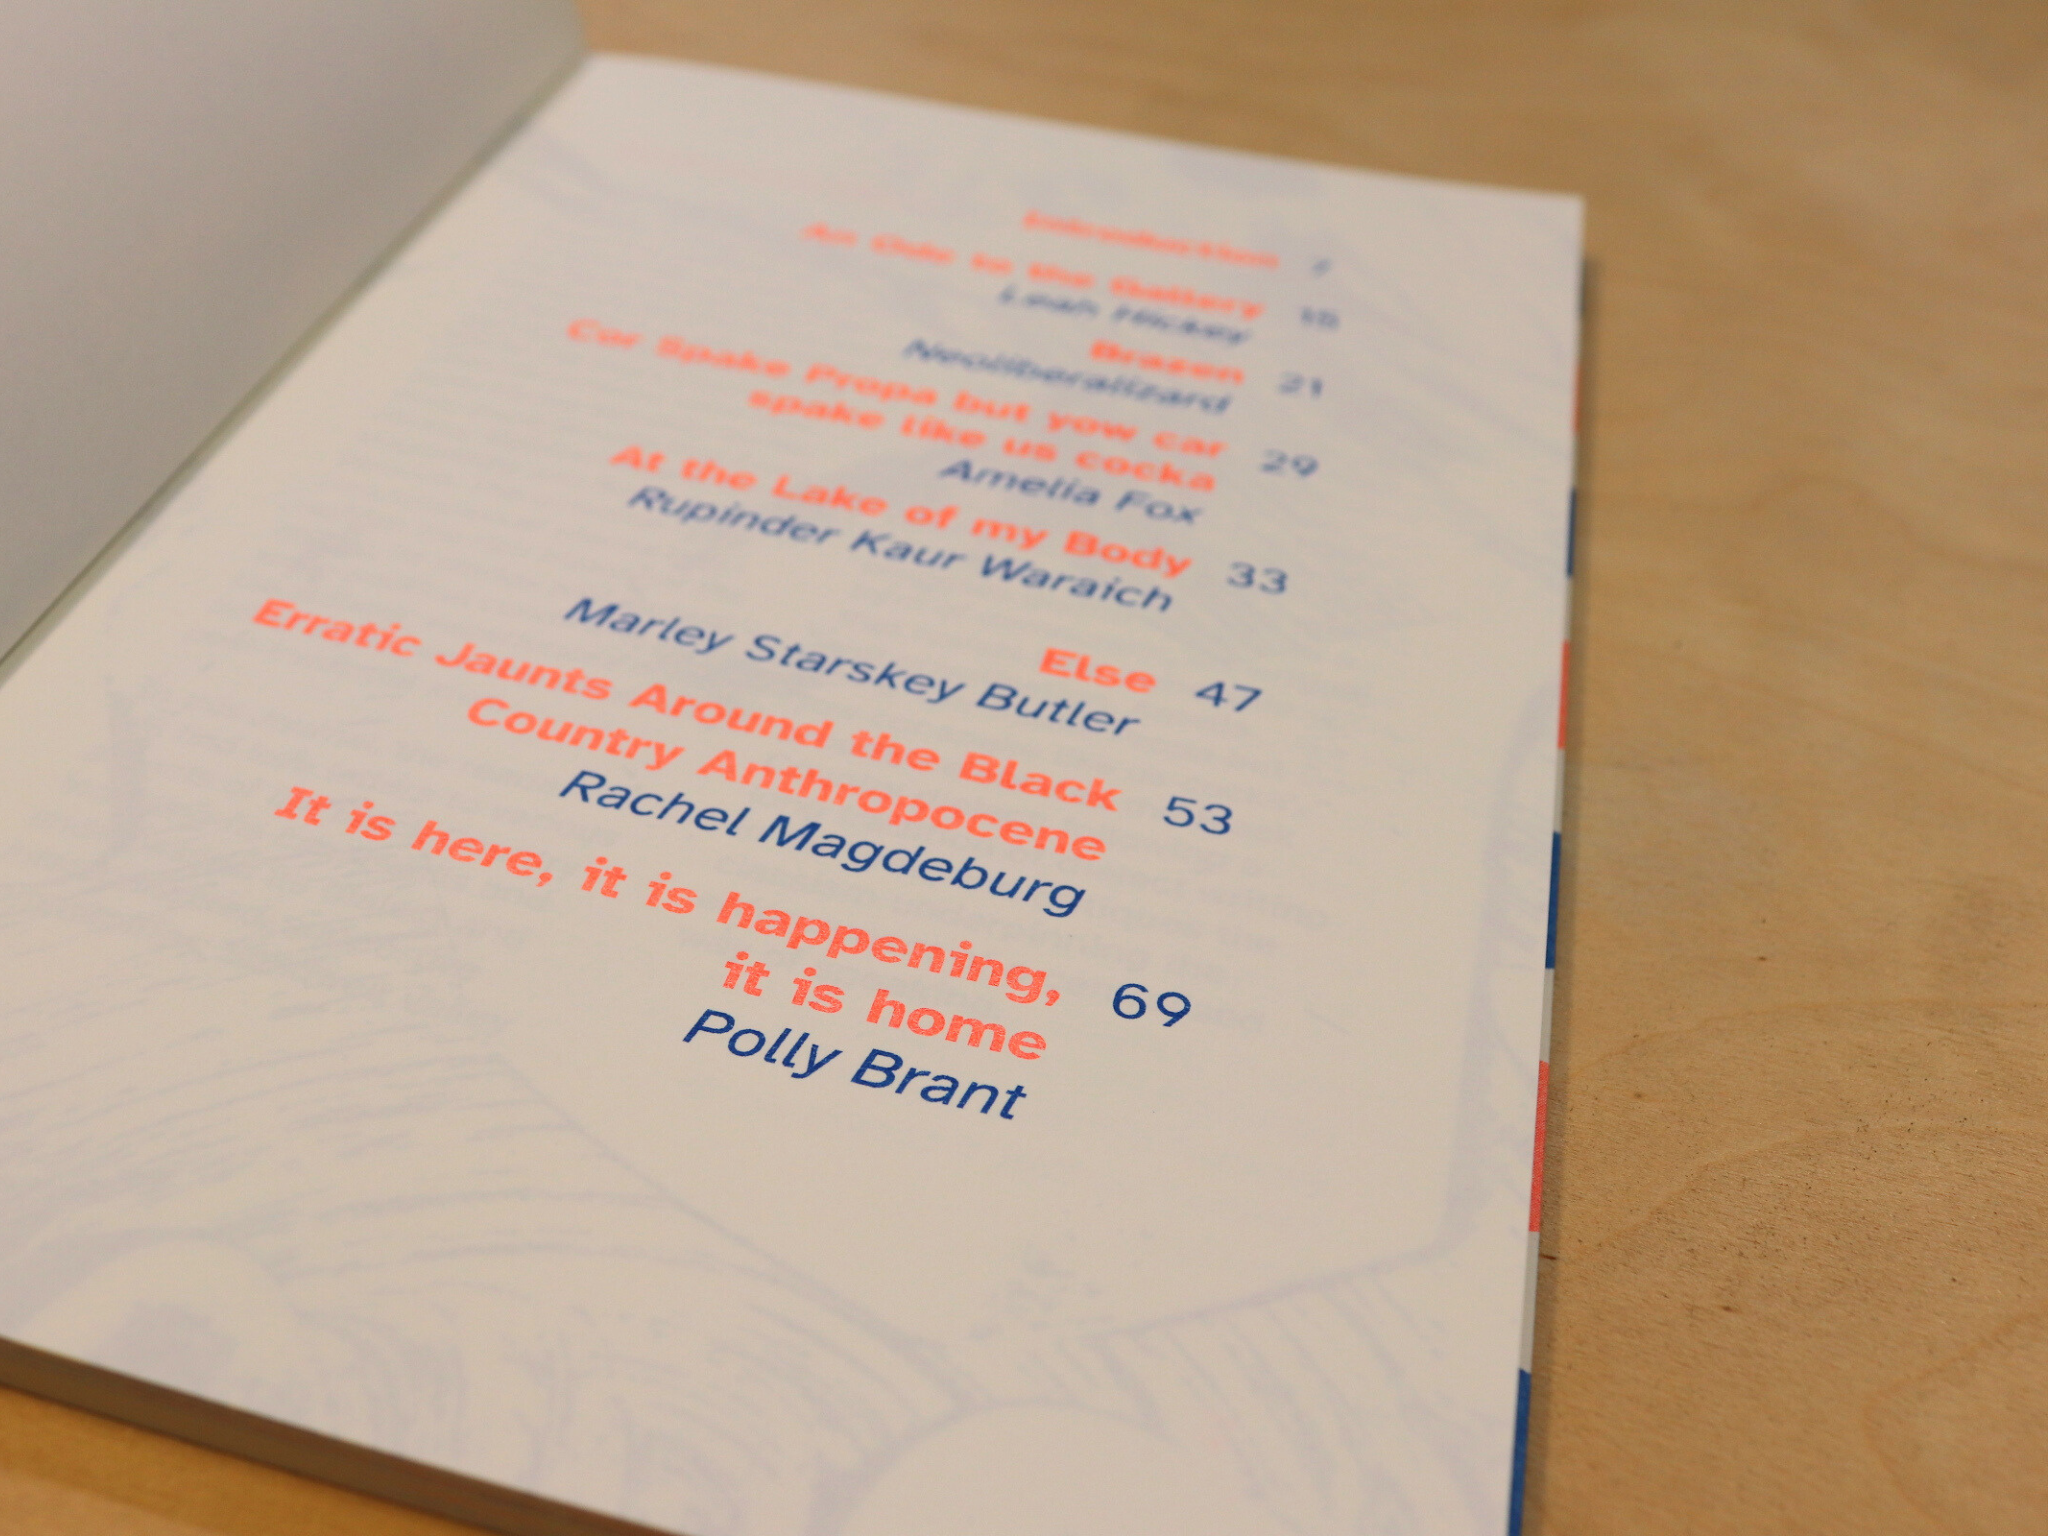 Introduction 7
An Ode to the Gallery
Leah Hickey
Brazen 21
Neoliberalizard
Car Spake Propa but yow car 29
spake like us cocka
Amelia Fox
At the Lake of my Body 33
Rupinder Kaur Waraich
Else 47
Marley Starskey Butler
Erratic Jaunts Around the Black 53
Country Anthropocene
Rachel Magdeburg
It is here, it is happening, 69
it is home
Polly Brant